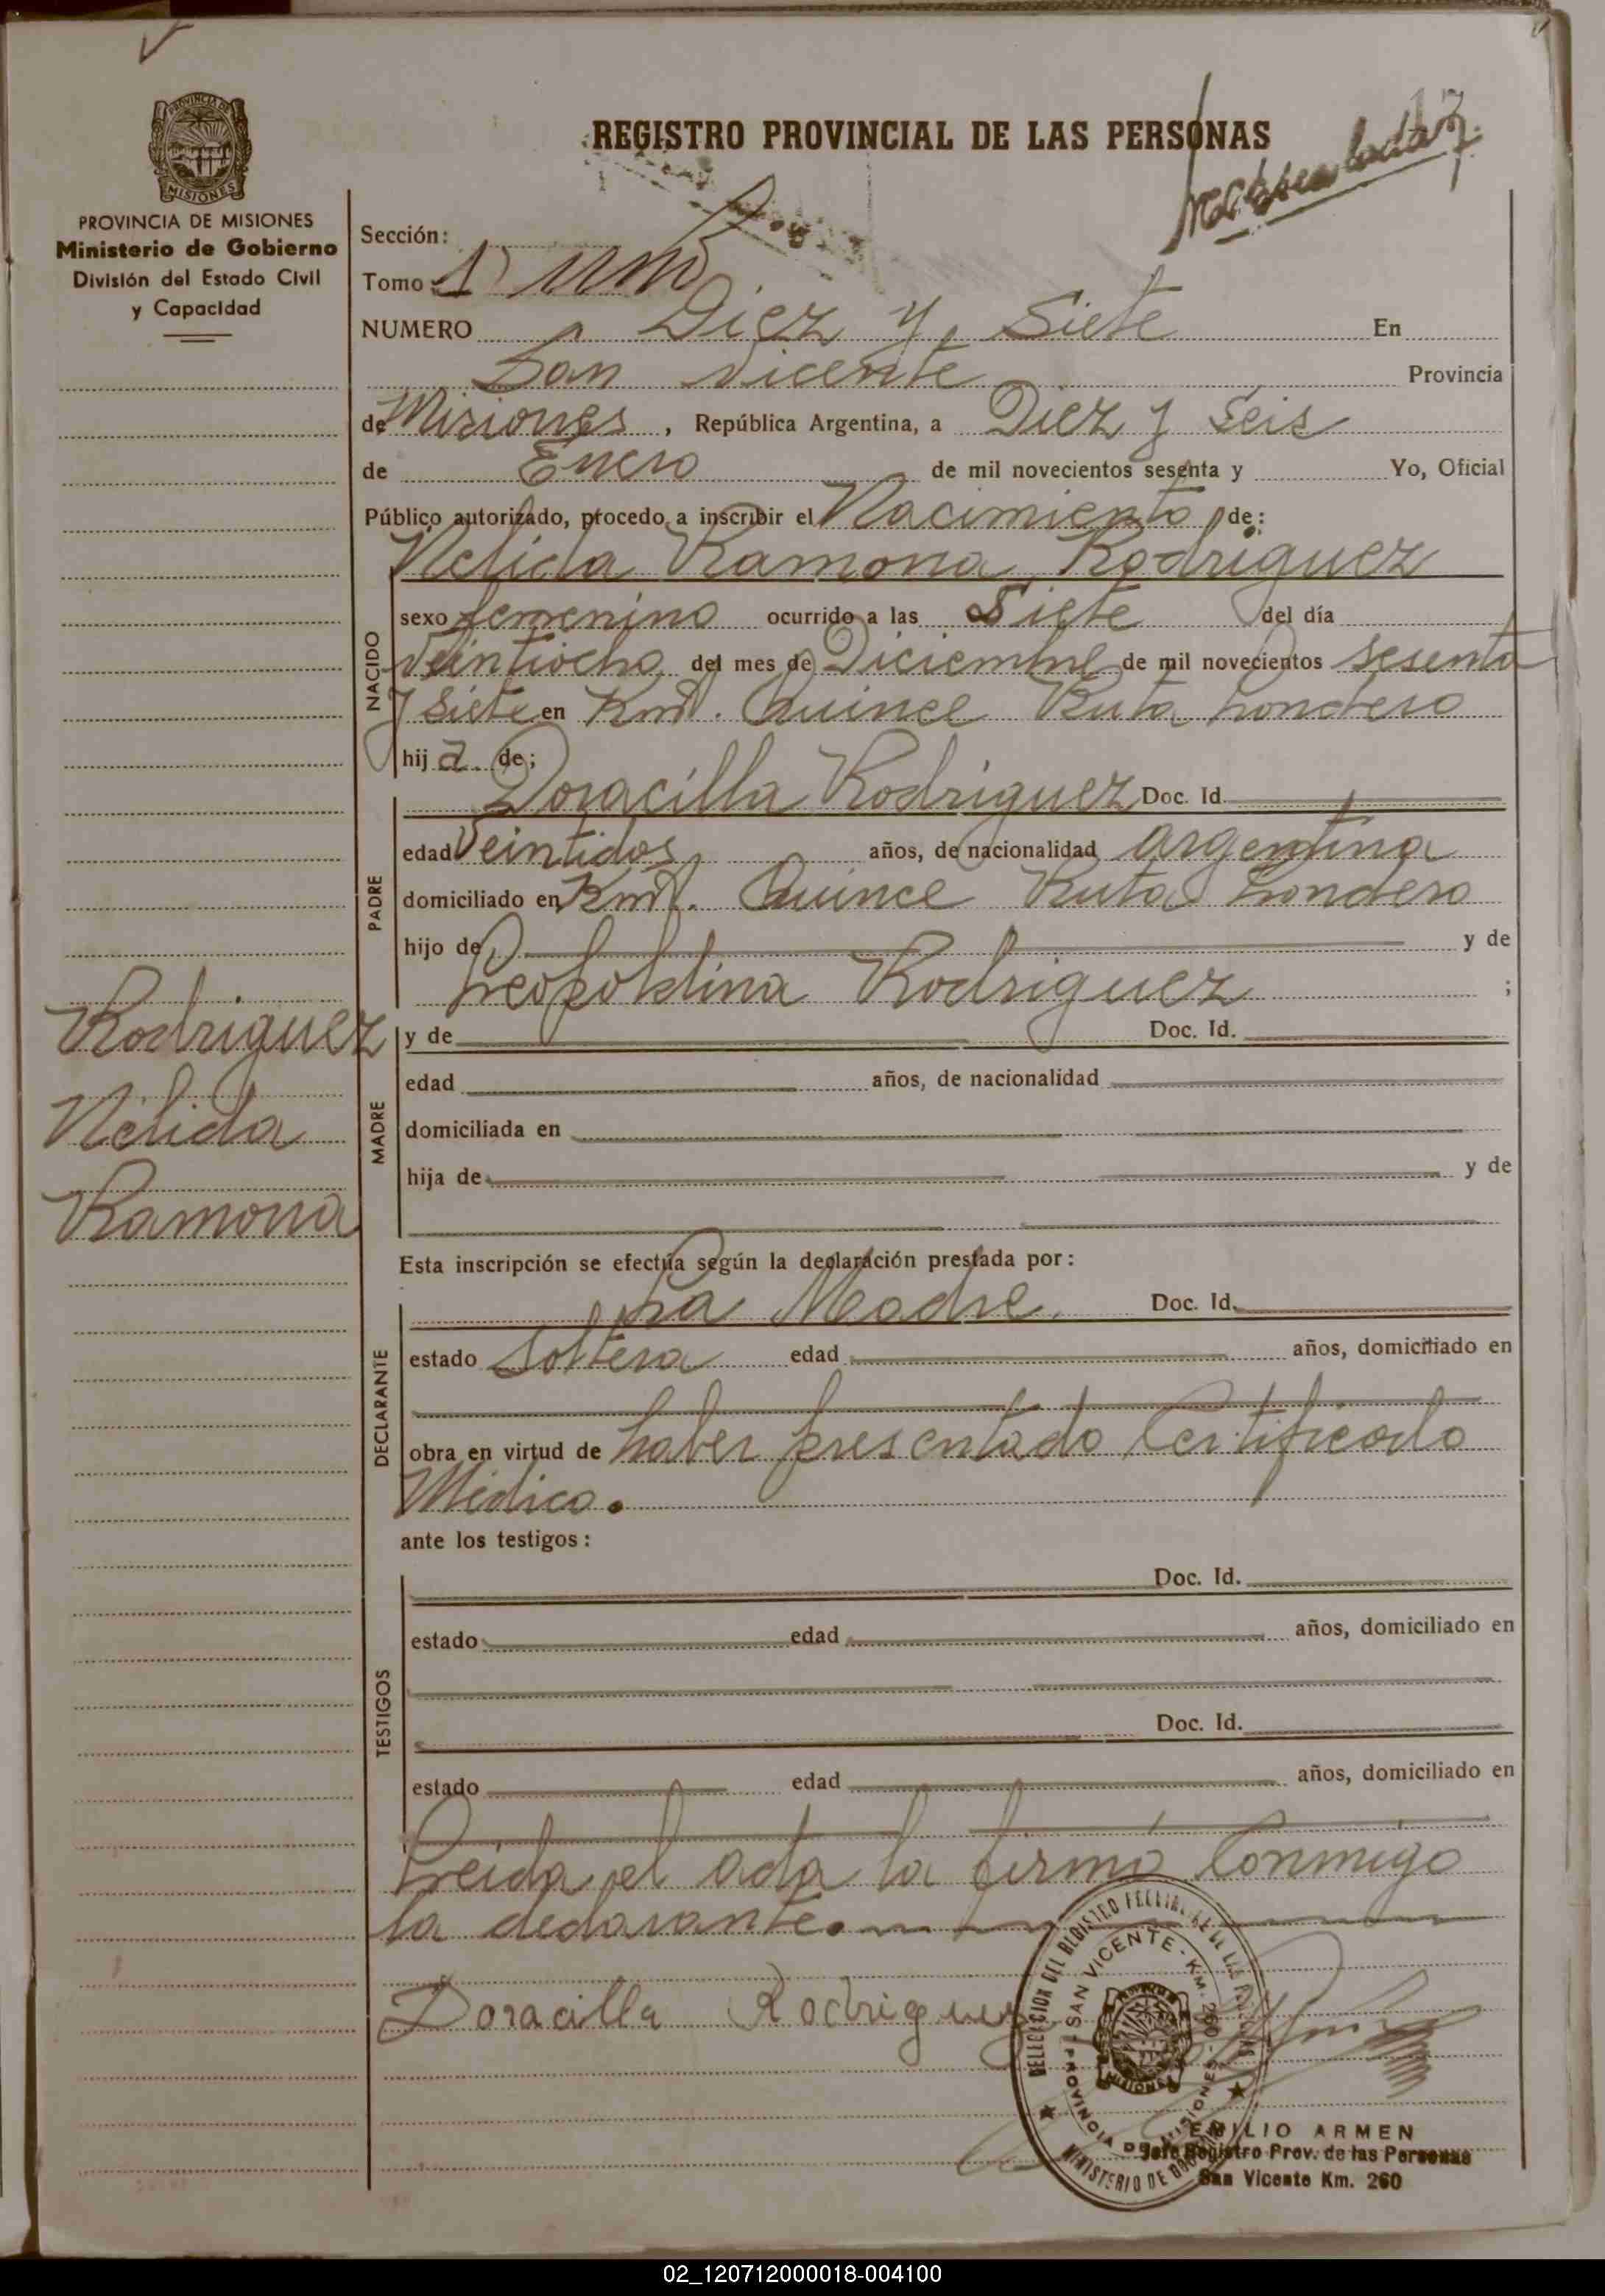 17
REGISTRO PROVINCIAL DE LAS PERSONAS
PROVINCIA DE
MISIONES
PROVINCIA DE MISIONES
Ministerio de Gobierno
División del Estado Civil
y Capacidad
Sección:
Tomo 1) uno
NUMERO Diez y Siete En
San Vicente Provincia
de Misiones, República Argentina, a Diez y Seis
de Enero de mil novecientos sesenta y Yo, Oficial
Público autorizado, procedo a inscribir el Nacimiento de:
Nelida Ramona Rodriguez
NACIDO
sexo femenino ocurrido a las Siete del día
Veintiocho del mes de Diciembre de mil novecientos sesenta
y Siete en Km. Quince Ruta Londero
hija de;
PADRE
Doracilla Rodriguez Doc. Id.
edad Veintidos años, de nacionalidad argentina
domiciliado en Km. Quince Ruta Londero
hijo de y de
Leopoldina Rodriguez ;
Rodriguez
Nelida
Ramona
MADRE
y de Doc. Id.
edad años, de nacionalidad
domiciliada en
hija de y de
Esta inscripción se efectúa según la declaración prestada por:
DECLARANTE
La Madre. Doc. Id.
estado Soltera edad años, domiciliado en
obra en virtud de haber presentado Certificado
Medico.
ante los testigos:
TESTIGOS
Doc. Id.
estado edad años, domiciliado en
Doc. Id.
estado edad años, domiciliado en
Leida el acta la firmó Conmigo
la declarante.
Doracilla Rodriguez
SAN VICENTE - KM. 260
PROVINCIA DE MISIONES
MINISTERIO DE
MISIONES
EMILIO ARMEN
Jefe Registro Prov. de las Personas
San Vicente Km. 260
02_120712000018-004100